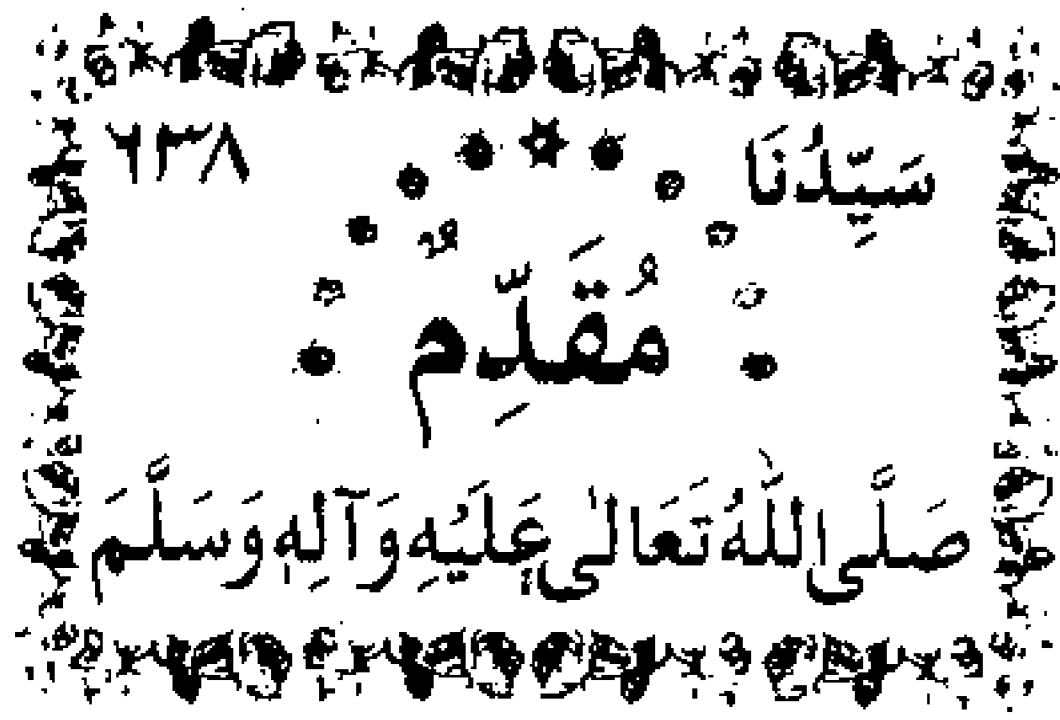 سَيِّدُنَا ٦٣٨
مُقَدِّمٌ
صَلَّى اللّٰهُ تَعَالٰى عَلَيْهِ وَآلِهٖ وَسَلَّمَ